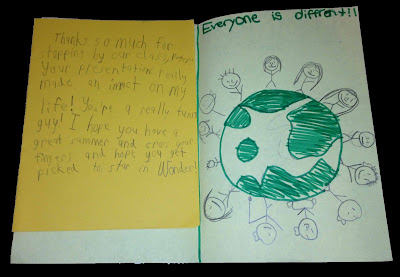 Thanks so much for
stopping by our class,
Your presentation really
made an impact on my
life! You're a really funny
guy! I hope you have a
great summer and cross your
fingers and hope you get
picked to star in Wonder!
Everyone is diffrent!!